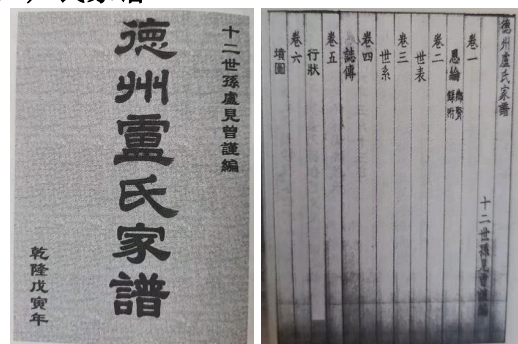 十二世孫盧見曾謹編
德州盧氏家譜
乾隆戊寅年
德州盧氏家譜
十二世孫見曾謹編
卷一
恩綸 鄉賢錄附
卷二
世表
卷三
世系
卷四
誌傳
卷五
行狀
卷六
墳圖